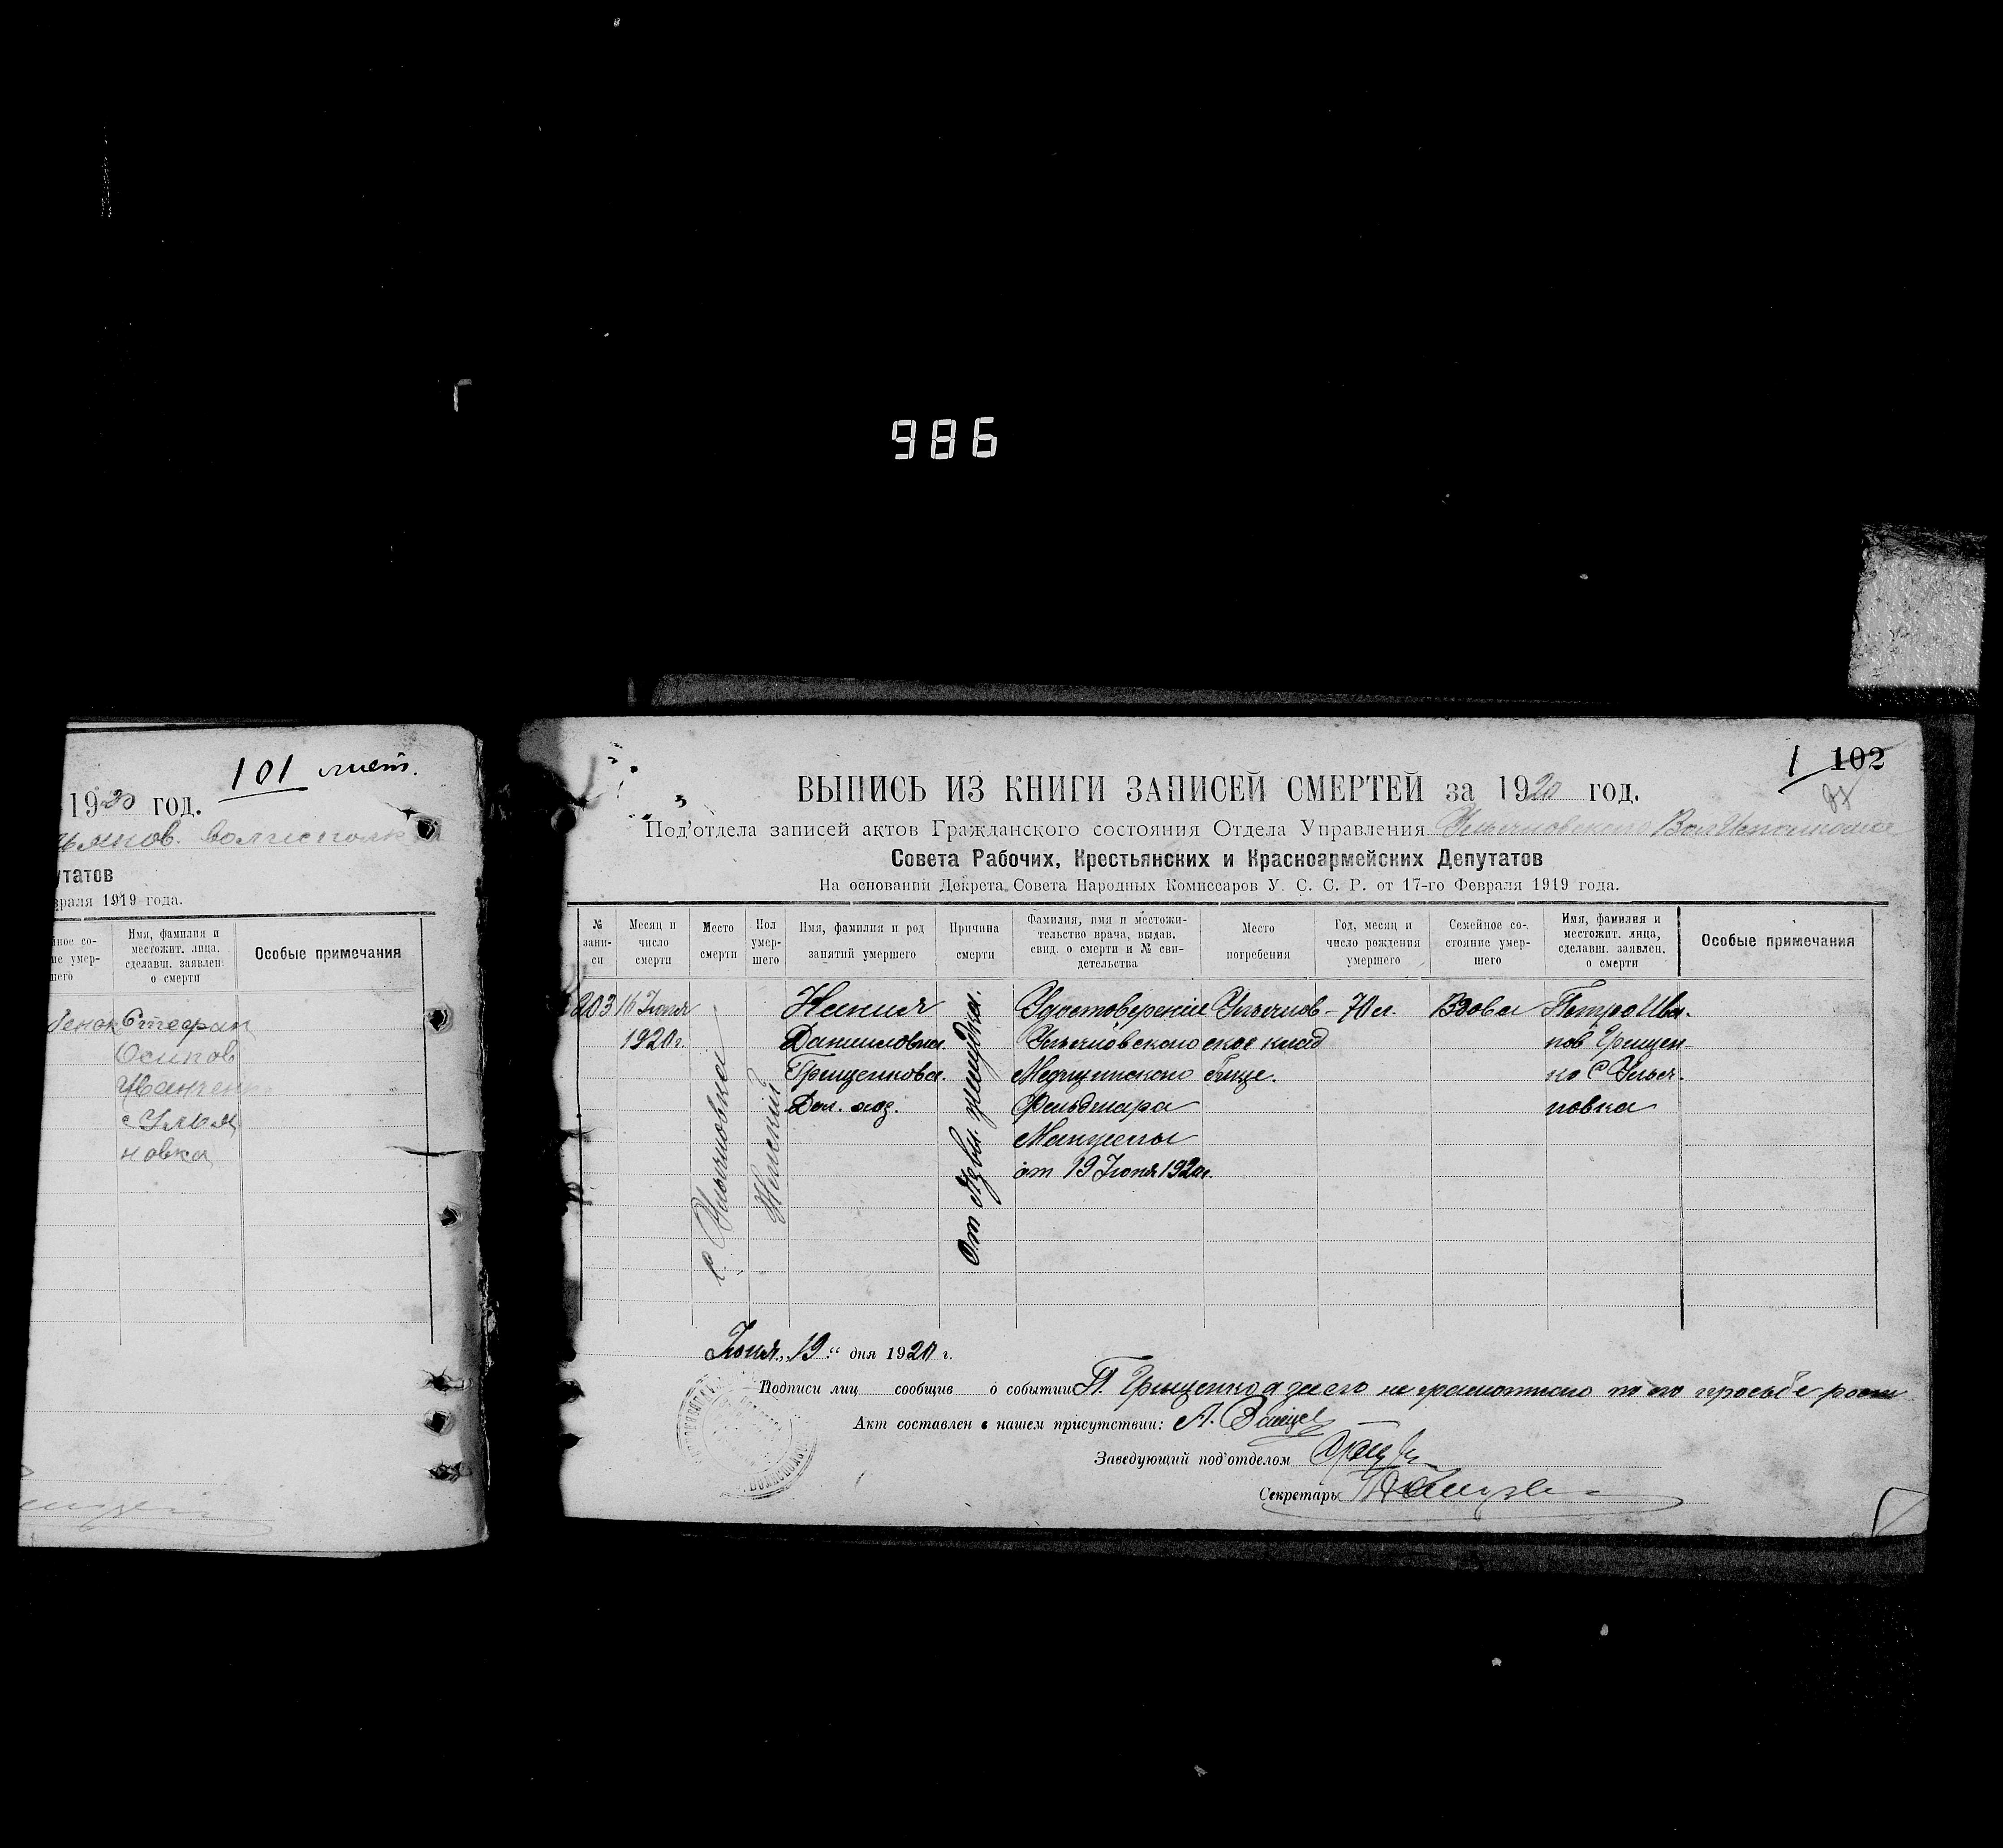 986
101 лист.
1920 год.
ьянов. волисполк
утатов
враля 1919 года.
Имя, фамилия и
местожит. лица,
сделавш. заявлен.
о смерти
Особые примечания
Стефан
Осипов
Иванчен
с Улья
новка
1 102
ВЫПИСЬ ИЗ КНИГИ ЗАПИСЕЙ СМЕРТЕЙ за 1920 год.
Под'отдела записей актов Гражданского состояния Отдела Управления Ульяновского Волисполкома
Совета Рабочих, Крестьянских и Красноармейских Депутатов
На основании Декрета Совета Народных Комиссаров У. С. С. Р. от 17-го Февраля 1919 года.
№ записи
Месяц и число смерти
Место смерти
Пол умершего
Имя, фамилия и род занятий умершего
Причина смерти
Фамилия, имя и местожительство врача, выдав. свид. о смерти и № свидетельства
Место погребения
Год, месяц и число рождения умершего
Семейное состояние умершего
Имя, фамилия и местожит. лица, сделавш. заявлен. о смерти
Особые примечания
203
16 Июня
1920 г.
с. Ульяновка
Женский
Даниловна
Грищенкова.
Дом. хоз.
От язвы желудка.
Удостоверение
Ульяновского
Медицинского
Фельдшера
от 19 Июня 1920 г.
Ульянов-
ское клад
бище.
70 л.
Вдова
Петро Ива-
нов Грищен-
ко С Улья-
новка
Июня „19“ дня 1920 г.
Подписи лиц сообщив о событии П. Грищенко а за его неграмотного по его просьбе росп
Акт составлен в нашем присутствии: А. Зайцев
Заведующий под'отделом
Секретарь